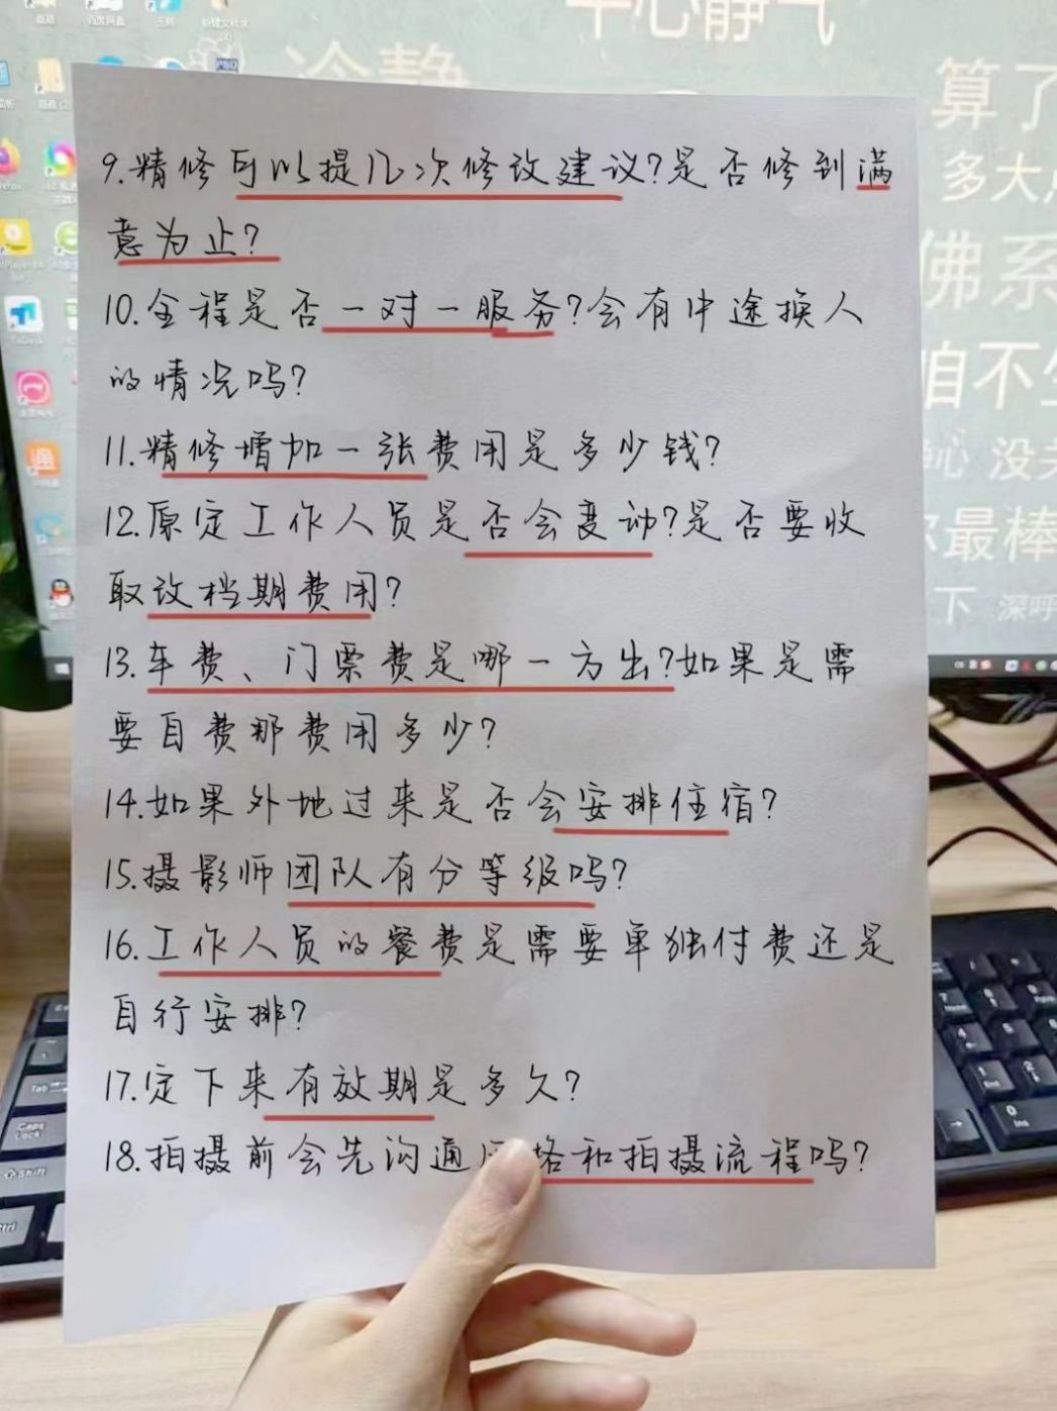 平心静气
冷静
算了
多大
佛系
咱不
静心 没
最棒
下 深呼
9.精修可以提几次修改建议?是否修到满
意为止?
10.全程是否一对一服务?会有中途换人
的情况吗?
11.精修增加一张费用是多少钱?
12.原定工作人员是否会变动?是否要收
取改档期费用?
13.车费、门票费是哪一方出?如果是需
要自费那费用多少?
14.如果外地过来是否会安排住宿?
15.摄影师团队有分等级吗?
16.工作人员的餐费是需要单独付费还是
自行安排?
17.定下来有效期是多久?
18.拍摄前会先沟通格和拍摄流程吗?